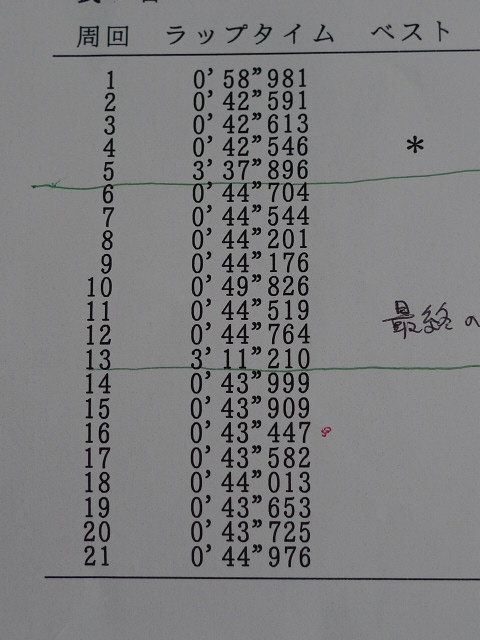 周回 ラップタイム ベスト
1 0'58"981
2 0'42"591
3 0'42"613
4 0'42"546 *
5 3'37"896
6 0'44"704
7 0'44"544
8 0'44"201
9 0'44"176
10 0'49"826
11 0'44"519 最終の
12 0'44"764
13 3'11"210
14 0'43"999
15 0'43"909
16 0'43"447
17 0'43"582
18 0'44"013
19 0'43"653
20 0'43"725
21 0'44"976